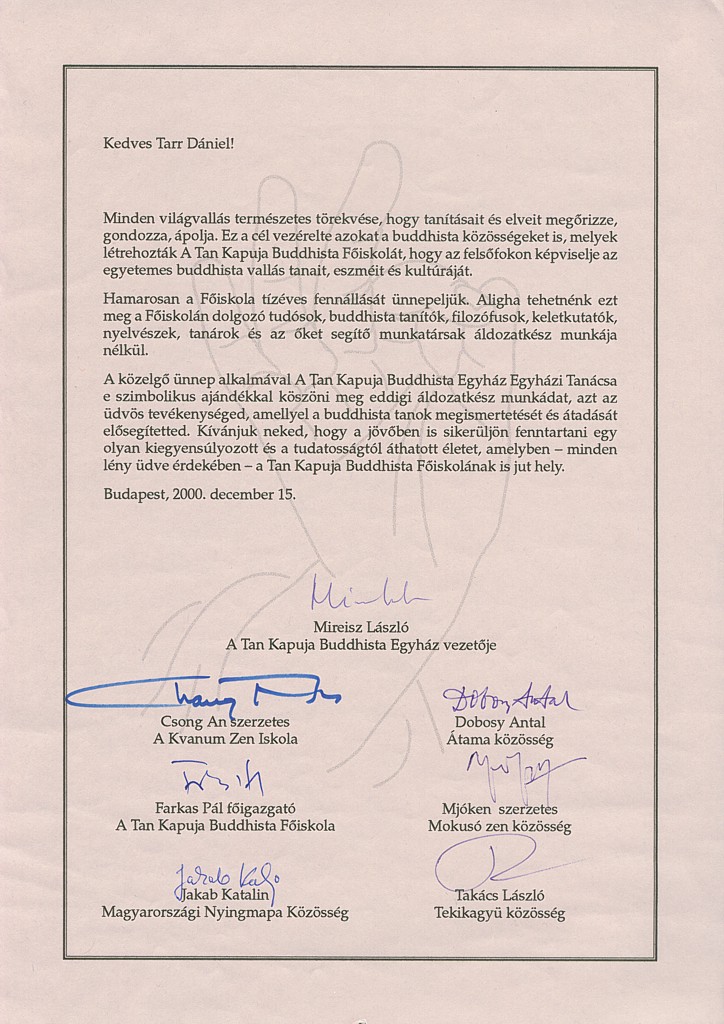 Kedves Tarr Dániel!
Minden világvallás természetes törekvése, hogy tanításait és elveit megőrizze,
gondozza, ápolja. Ez a cél vezérelte azokat a buddhista közösségeket is, melyek
létrehozták A Tan Kapuja Buddhista Főiskolát, hogy az felsőfokon képviselje az
egyetemes buddhista vallás tanait, eszméit és kultúráját.
Hamarosan a Főiskola tízéves fennállását ünnepeljük. Aligha tehetnénk ezt
meg a Főiskolán dolgozó tudósok, buddhista tanítók, filozófusok, keletkutatók,
nyelvészek, tanárok és az őket segítő munkatársak áldozatkész munkája
nélkül.
A közelgő ünnep alkalmával A Tan Kapuja Buddhista Egyház Egyházi Tanácsa
e szimbolikus ajándékkal köszöni meg eddigi áldozatkész munkádat, azt az
üdvös tevékenységed, amellyel a buddhista tanok megismertetését és átadását
elősegítetted. Kívánjuk neked, hogy a jövőben is sikerüljön fenntartani egy
olyan kiegyensúlyozott és a tudatosságtól áthatott életet, amelyben – minden
lény üdve érdekében – a Tan Kapuja Buddhista Főiskolának is jut hely.
Budapest, 2000. december 15.
Mireisz László
A Tan Kapuja Buddhista Egyház vezetője
Csong An szerzetes
A Kvanum Zen Iskola
Dobosy Antal
Dobosy Antal
Átama közösség
Farkas Pál főigazgató
A Tan Kapuja Buddhista Főiskola
Mjóken szerzetes
Mokusó zen közösség
Jakab Katalin
Magyarországi Nyingmapa Közösség
Takács László
Tekikagyü közösség